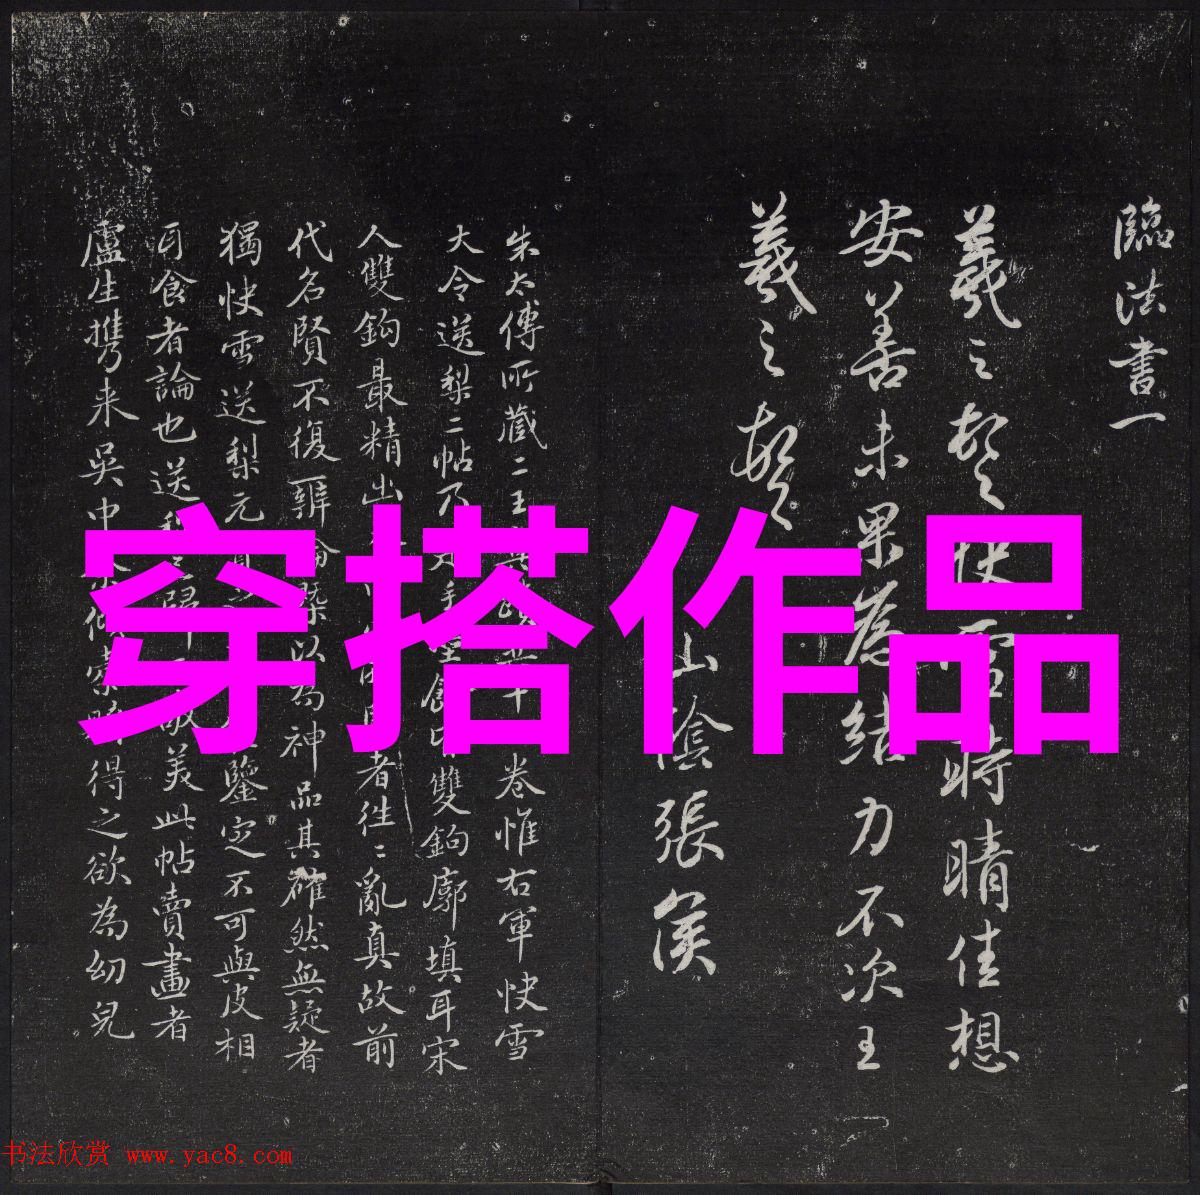 臨法書一
羲之頓首快雪時晴佳想
安善未果為結力不次王
羲之頓首
山陰張侯
朱太傅所藏二王真蹟共十卷惟右軍快雪
大令送梨二帖乃
雙鉤廓填耳宋
人雙鉤最精出
者往往亂真故前
代名賢不復辨論概以為神品其確然無疑者
獨快雪送梨元
鑒定不可與皮相
耳食者論也送梨歸
美此帖賣畫者
盧生攜来吳中
得之欲為幼兒
穿搭作品
书法欣赏 www.yac8.com